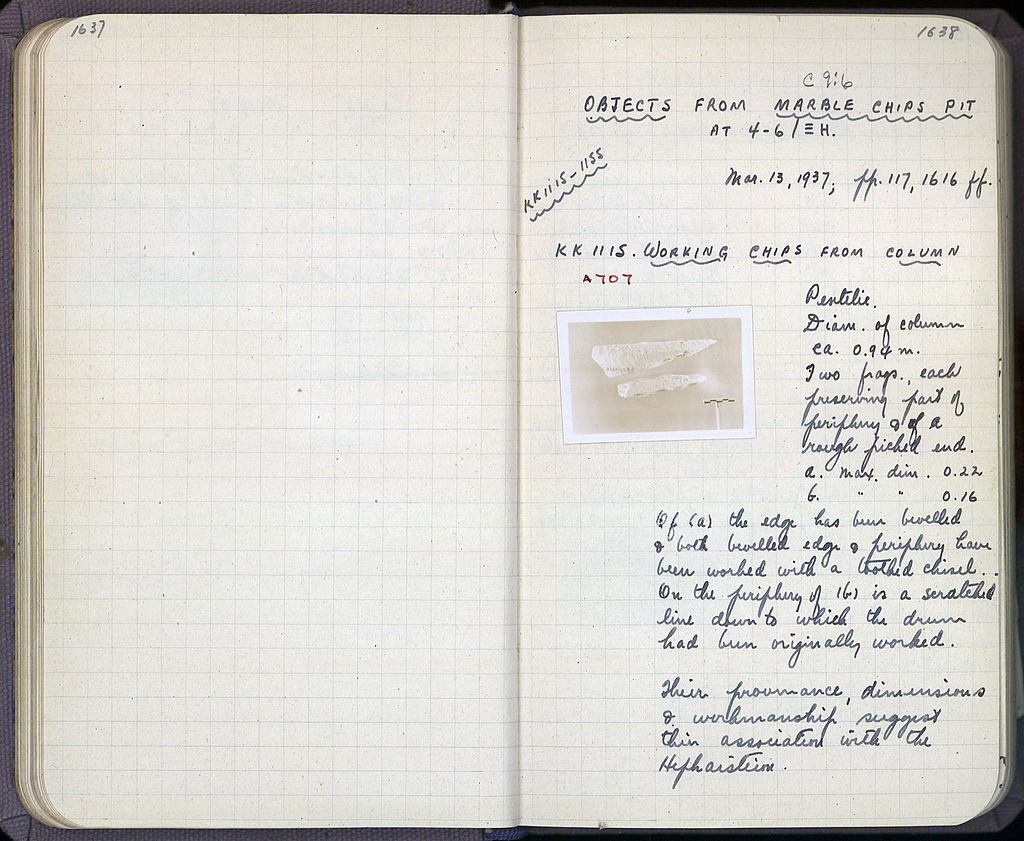 1637
1638
C 9:6
OBJECTS FROM MARBLE CHIPS PIT
AT 4-6/ΞH.
KK1115-1155
Mar. 13, 1937; pp. 117, 1616 ff.
KK 1115. WORKING CHIPS FROM COLUMN
A707
Pentelic.
Diam. of column
ca. 0.94 m.
Two frags., each
preserving part of
periphery & of a
rough picked end.
a. Max. dim. 0.22
b. " " 0.16
Of (a) the edge has been bevelled
& both bevelled edge & periphery have
been worked with a toothed chisel.
On the periphery of (b) is a scratched
line down to which the drum
had been originally worked.
Their provenance, dimensions
& workmanship suggest
their association with the
Hephaisteion.